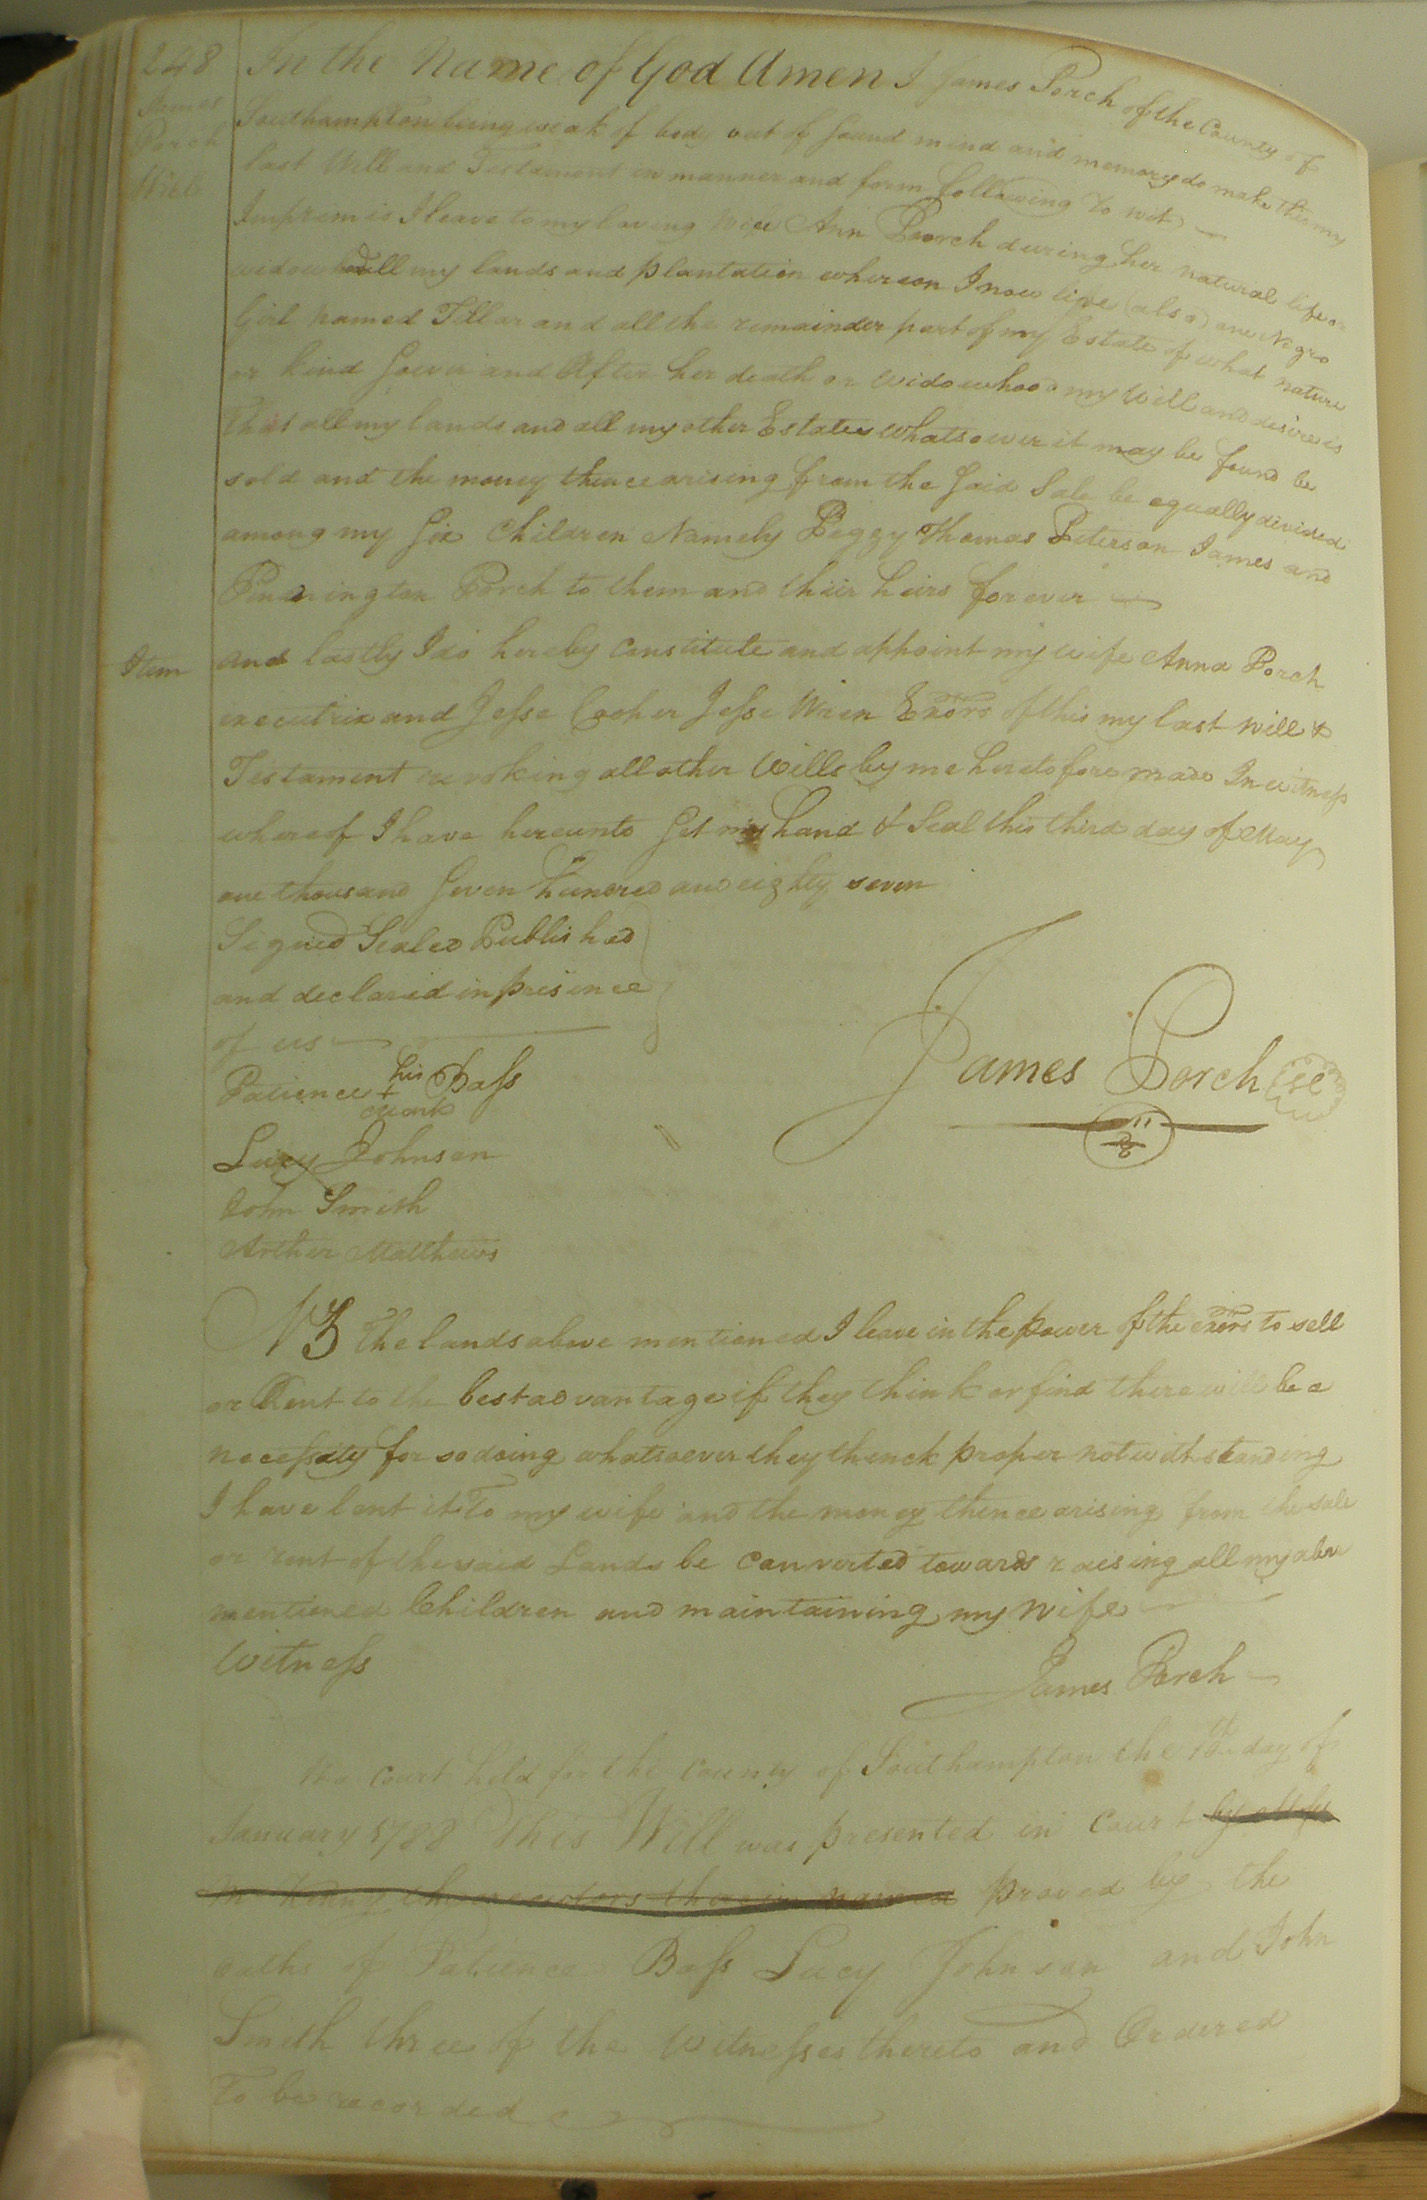 248
James
Porch
Will
In the Name of God Amen I James Porch of the County of
Southampton being weak of body out of Sound mind and memory do make this my
last Will and Testament in manner and form following To wit
Imprimis I leave to my loving wife Ann Porch during her natural life or
widowhood all my lands and plantation whereon I now live (also) one Negro
Girl named Tillar and all the remainder part of my Estate of what nature
or kind Soever and After her death or widowhood my Will and desire is
that all my lands and all my other Estate whatsoever it may be found be
sold and the money thence arising from the Said Sale be equally divided
among my Six Children Namely Peggy Thomas Peterson James and
Pennington Porch to them and their heirs for ever
Item and lastly I do hereby Constitute and appoint my wife Anna Porch
executrix and Jesse Cooper Jesse Wren Exors of this my last Will &
Testament revoking all other Wills by me heretofore made In witness
whereof I have hereunto Set my hand & Seal this third day of May
one thousand Seven hundred and eighty seven
Signed Sealed Published
and declared in presence
of us
James Porch Se
Patience his + mark Bass
Lucy Johnson
John Smith
Arther Matthews
NB The lands above mentioned I leave in the power of the exors to sell
or Rent to the best advantage if they think or find there will be a
necessity for so doing whatsoever they thinck proper notwithstanding
I have lent it To my wife and the money thence arising from the sale
or rent of the said Lands be converted towards raising all my above
mentioned Children and maintaining my Wife
Witness
James Porch
court held for the County of Southampton the 10th day of
January 1788 This Will was presented in Court
the executors therein named proved by the
oaths of Patience Bass Lucy Johnson and John
Smith three of the Witnesses thereto and Ordered
To be recorded